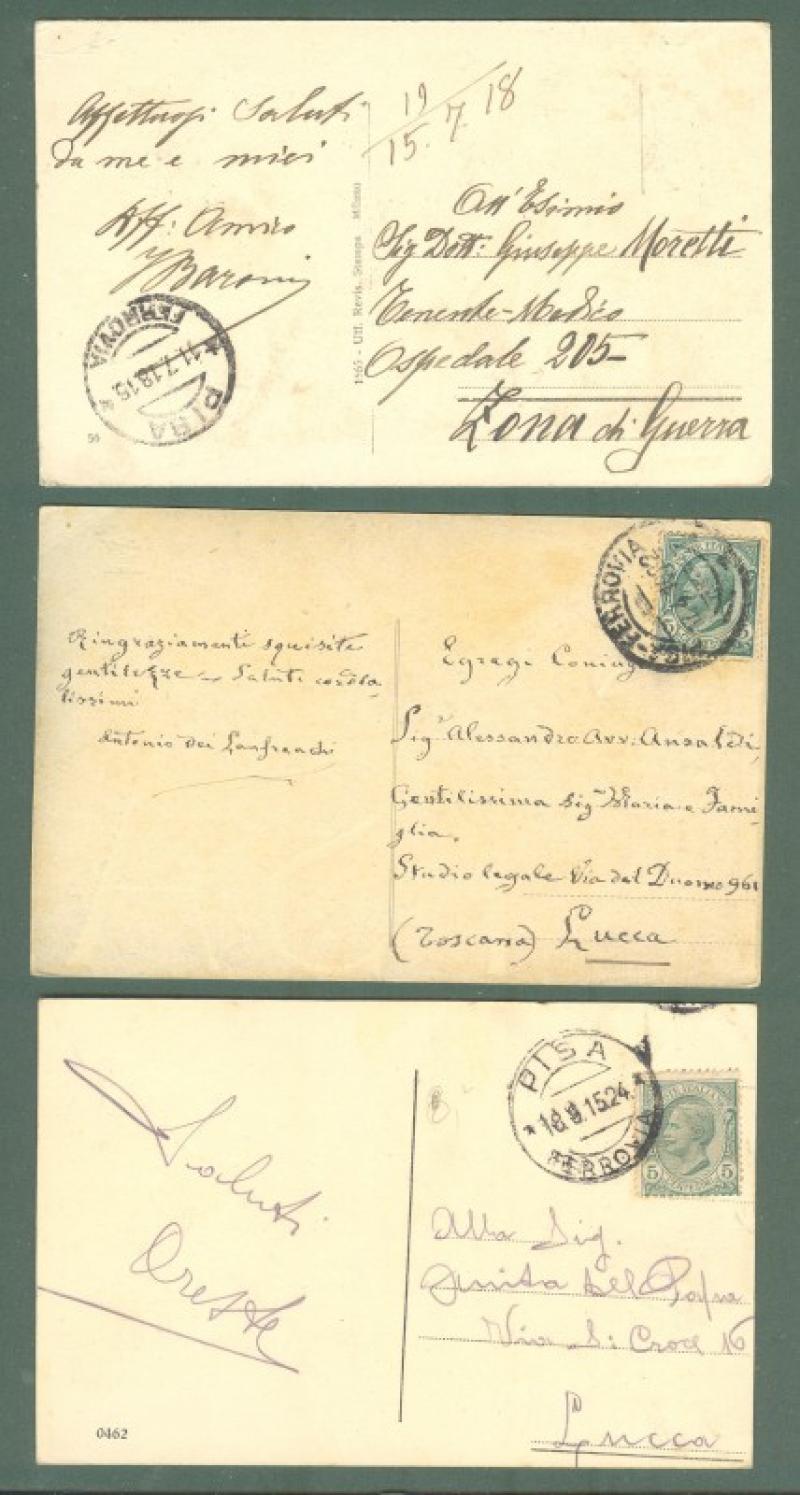 Affettuosi Saluti
da me e miei
Aff: Amico
Baroni
FERROVIA
* 11.7.18.15 *
PISA
50
1565 - Uff. Revis. Stampa Milano
19
15. 7. 18
All'Esimio
Sig Dott: Giuseppe Moretti
Tenente-Medico
Ospedale 205-
Zona di Guerra
Ringraziamenti squisite
gentilezze - Saluti cordia-
lissimi
Antonio dei Lanfranchi
PISA-FERROVIA
5
Egregi Coniug
Sigr Alessandro Avv: Ansaldi,
Gentilissima Sigra Maria e Fami-
glia.
Studio legale Via del Duomo 961
(Toscana) Lucca
PISA
FERROVIA
5 5
Saluti
Oreste
Alla Sig.
Anita Del
Via S: Croce 16
Lucca
0462